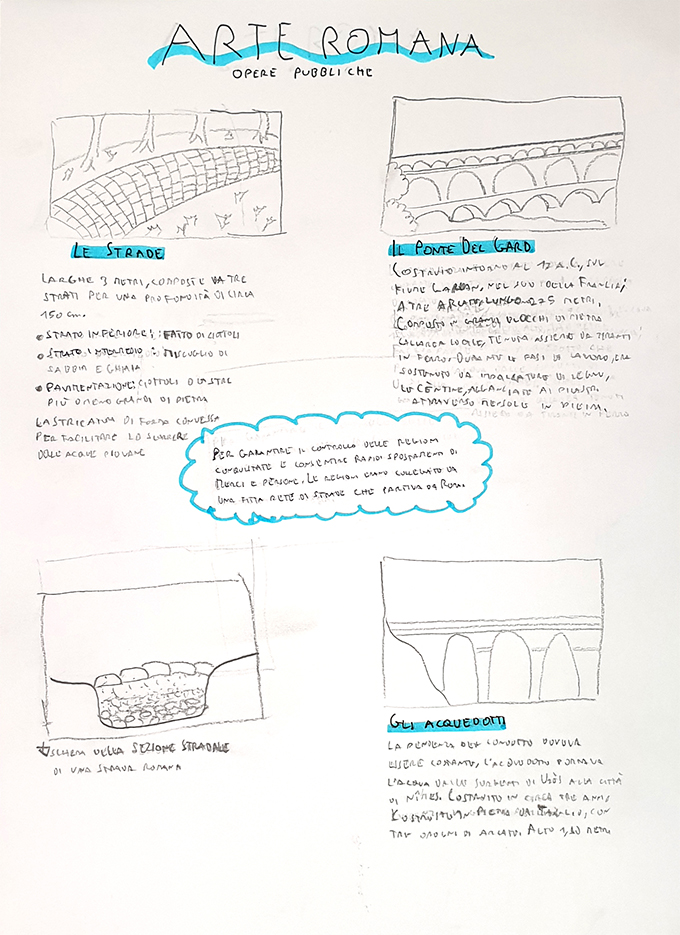 ARTE ROMANA
OPERE PUBBLICHE
LE STRADE
LARGHE 3 METRI, COMPOSTE DA TRE
STRATI PER UNA PROFONDITÀ DI CIRCA
150 cm.
STRATO INFERIORE: FATTO DI CIOTTOLI
STRATO INTERMEDIO: MISCUGLIO DI
SABBIA E GHIAIA
PAVIMENTAZIONE: CIOTTOLI O LASTRE
PIÙ O MENO GRANDI DI PIETRA
LASTRICATURA DI FORMA CONVESSA
PER FACILITARE LO SCORRERE
DELL'ACQUE PIOVANE
IL PONTE DEL GARD
COSTRUITO INTORNO AL 12 A.C., SUL
FIUME GARDAN, NEL SUD DELLA FRANCIA;
A TRE ARCATE, LUNGO 225 METRI.
COMPOSTO IN GRANDI BLOCCHI DI PIETRA
CALCAREA LOCALE, TENUTA ASSIEME DA TIRANTI
IN FERRO. DURANTE LE FASI DI LAVORO, ERA
SOSTENUTO DA IMPALCATURE DI LEGNO,
LE CENTINE, AGGANCIATE AI PILASTRI
ATTRAVERSO MENSOLE IN PIETRA.
PER GARANTIRE IL CONTROLLO DELLE REGIONI
CONQUISTATE E CONSENTIRE RAPIDI SPOSTAMENTI DI
MERCI E PERSONE, LE REGIONI ERANO COLLEGATE DA
UNA FITTA RETE DI STRADE CHE PARTIVA DA ROMA.
SCHEMA DELLA SEZIONE STRADALE
DI UNA STRADA ROMANA
GLI ACQUEDOTTI
LA PENDENZA DEL CONDOTTO DOVEVA
ESSERE COSTANTE, L'ACQUEDOTTO PORTAVA
L'ACQUA DALLE SORGENTI DI UZÈS ALLA CITTÀ
DI NÎMES. COSTRUITO IN CIRCA TRE ANNI,
COSTRUITO IN PIETRA DA TAGLIO, CON
TRE ORDINI DI ARCATE. ALTO METRI